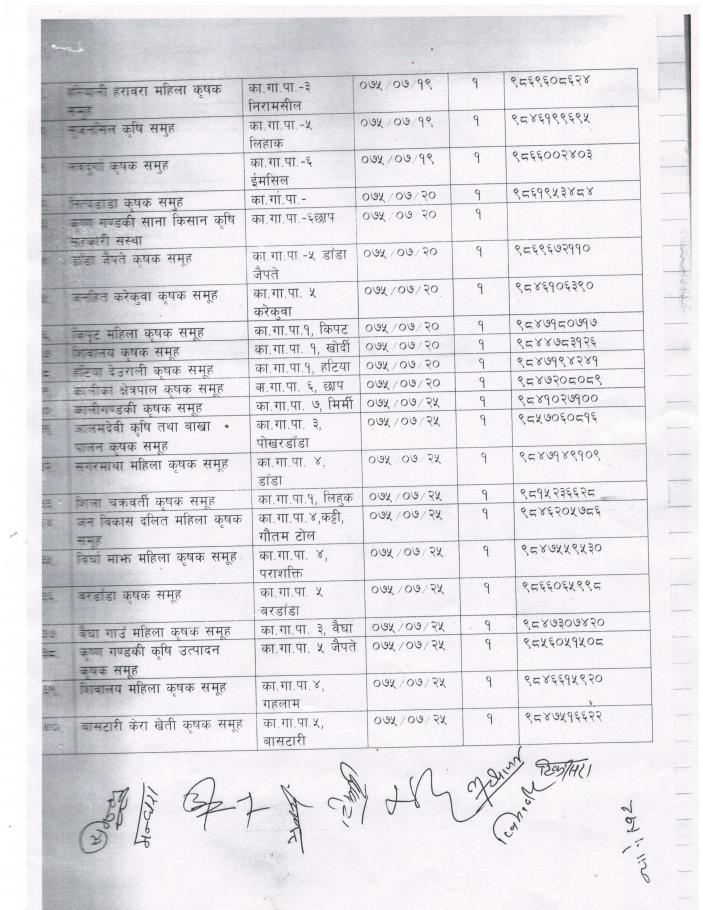 हरावरा महिला कृषक का.गा.पा.-३ ०७५/०७/१९ १ ९८६९६०८६२४
समूह निरामसील
कृषि समुह का.गा.पा.-५ ०७५/०७/१९ १ ९८४६१९९६९५
लिहाक
कृषक समुह का.गा.पा.-६ ०७५/०७/१९ १ ९८६६००२४०३
ईमसिल
कृषक समूह का.गा.पा.- ०७५/०७/२० १ ९८६१९५३४८४
कृष्ण गण्डकी साना किसान कृषि का.गा.पा.-६छाप ०७५/०७/२० १
सहकारी संस्था
डाँडा जैपते कृषक समूह का.गा.पा.-५ डाँडा ०७५/०७/२० १ ९८६९६७२११०
जैपते
जनहित करेकुवा कृषक समूह का.गा.पा. ५ ०७५/०७/२० १ ९८४६१०६३९०
करेकुवा
किपुट महिला कृषक समूह का.गा.पा.१, किपट ०७५/०७/२० १ ९८४७१८०७१७
शिवालय कृषक समूह का.गा.पा. १, खोर्दी ०७५/०७/२० १ ९८४४७८३१२६
हटिया देउराली कृषक समूह का.गा.पा.१, हटिया ०७५/०७/२० १ ९८४७१९४२४१
कालीका क्षेत्रपाल कृषक समूह का.गा.पा. ६, छाप ०७५/०७/२० १ ९८४७२०८०८९
कालीगण्डकी कृषक समूह का.गा.पा. ७, मिर्मी ०७५/०७/२५ १ ९८४१०२७१००
आलमदेवी कृषि तथा बाखा का.गा.पा. ३, ०७५/०७/२५ १ ९८५७०६०८१६
पालन कृषक समूह पोखरडाँडा
सगरमाथा महिला कृषक समूह का.गा.पा. ४, ०७५/०७/२५ १ ९८४७१४९१०९
डाँडा
शिला चक्रवर्ती कृषक समूह का.गा.पा.१, लिहुक ०७५/०७/२५ १ ९८१५२३६६२८
जन विकास दलित महिला कृषक का.गा.पा.४,कट्टी, ०७५/०७/२५ १ ९८४६२०५७८६
समूह गौतम टोल
विर्घा माझ महिला कृषक समूह का.गा.पा. ४, ०७५/०७/२५ १ ९८४७५५९५३०
पराशक्ति
बरडाँडा कृषक समूह का.गा.पा. ५ ०७५/०७/२५ १ ९८६६०६५९९८
बरडाँडा
वैघा गाउँ महिला कृषक समूह का.गा.पा. ३, वैघा ०७५/०७/२५ १ ९८४७३०७४२०
कृष्ण गण्डकी कृषि उत्पादन का.गा.पा. ५ जैपते ०७५/०७/२५ १ ९८५६०५१५०८
कृषक समूह
शिवालय महिला कृषक समूह का.गा.पा.४, ०७५/०७/२५ १ ९८४६६१५९२०
गहलाम
बासटारी केरा खेती कृषक समूह का.गा.पा.५, ०७५/०७/२५ १ ९८४७५१६६२२
बासटारी